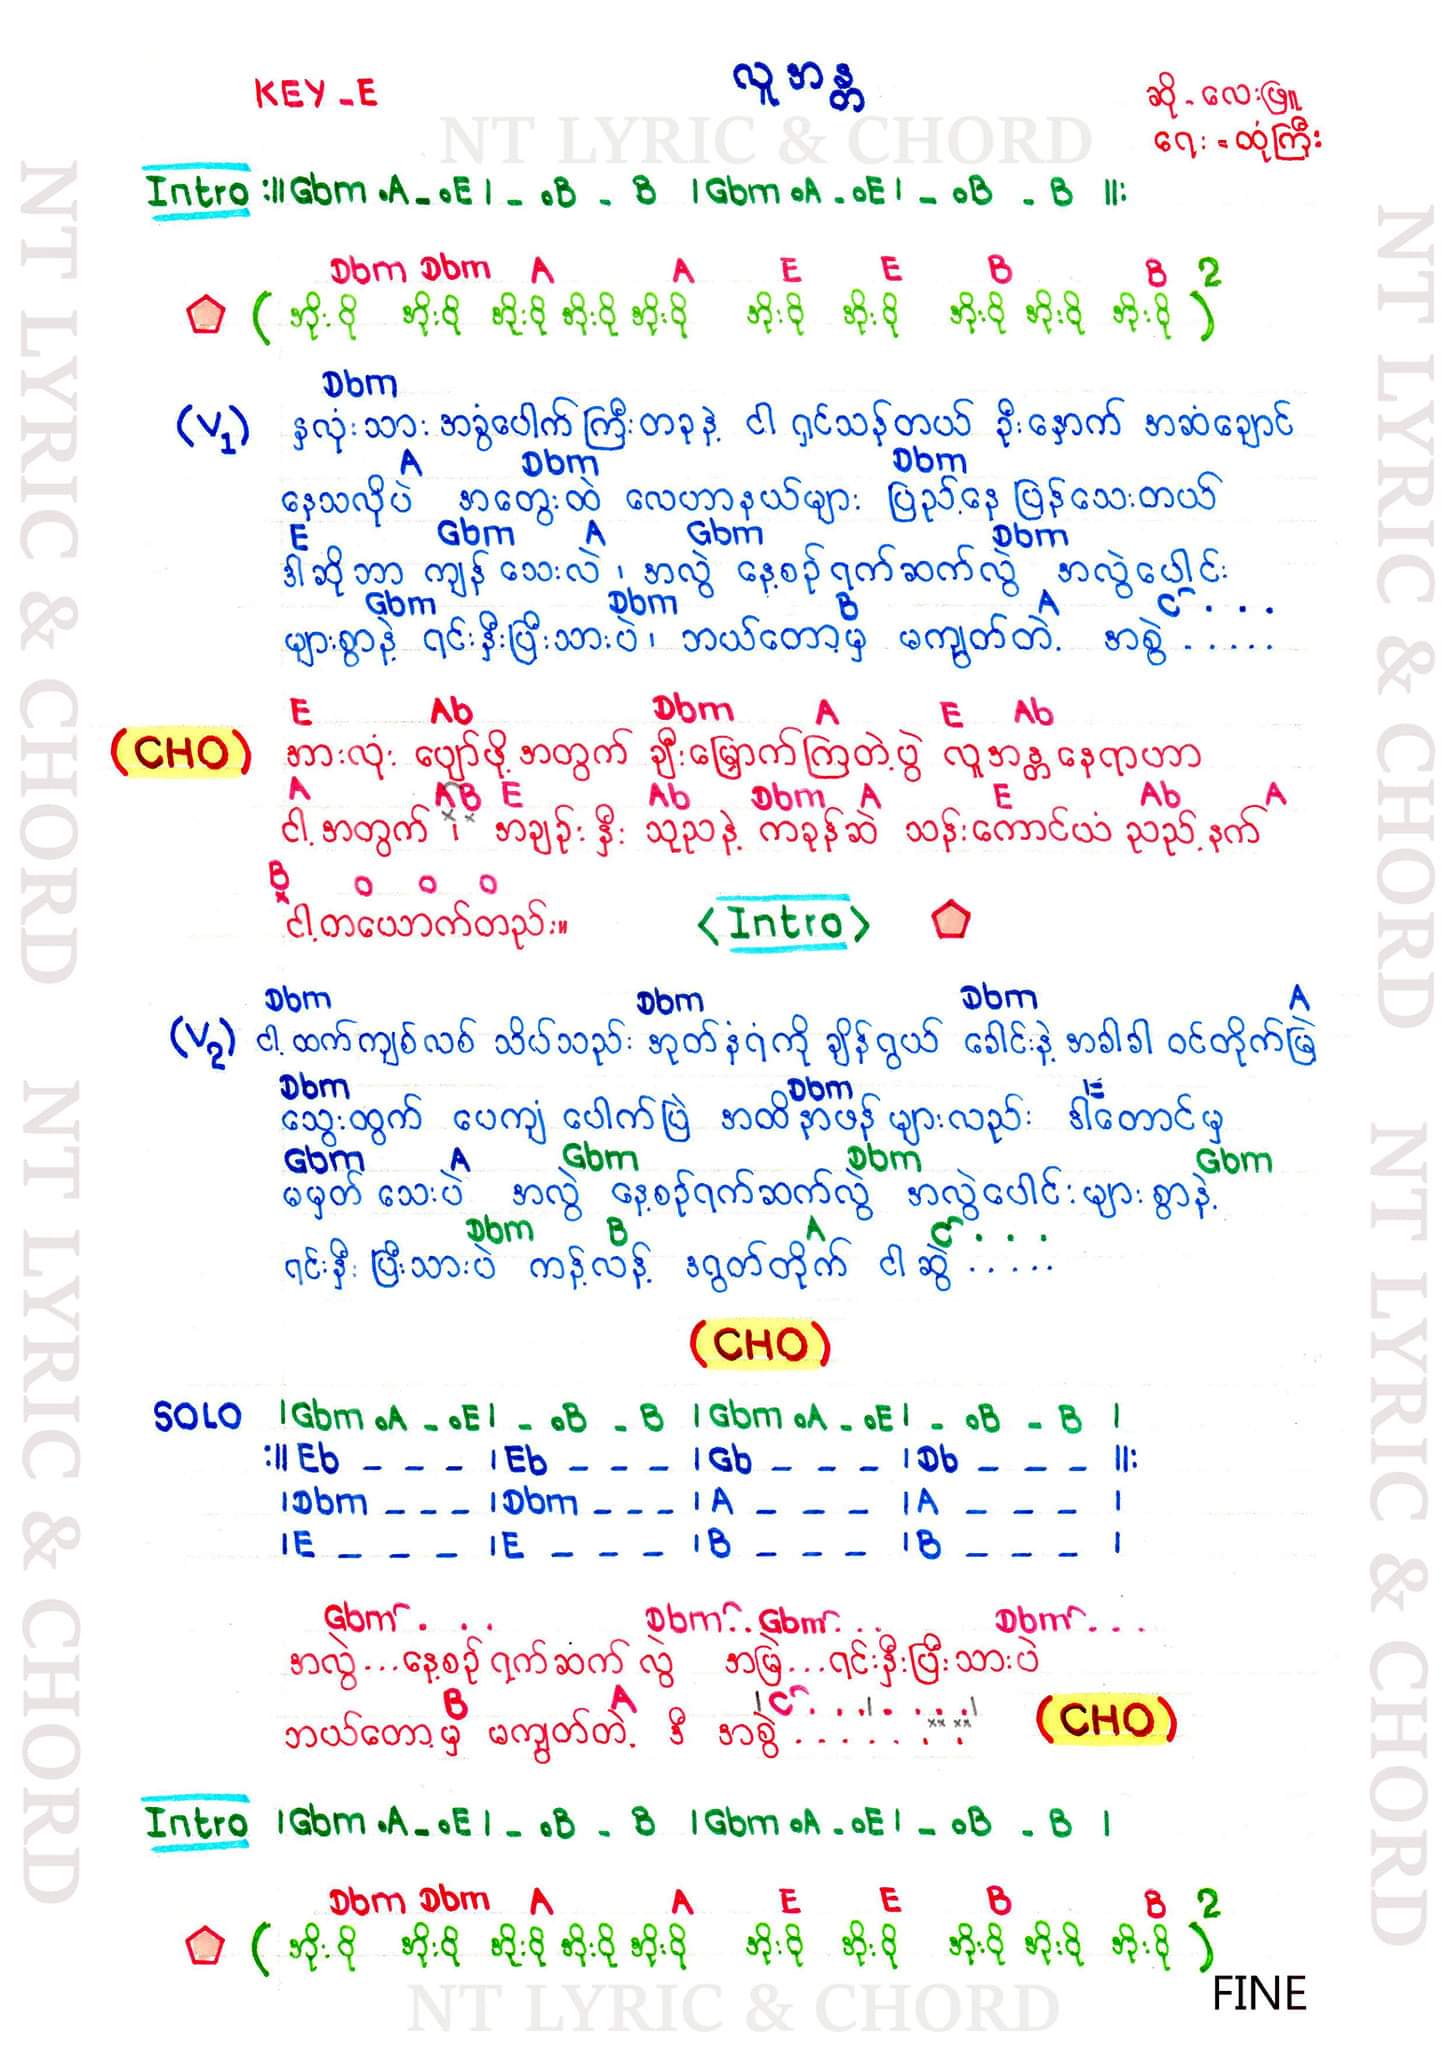 KEY - E
လူအန္တ
ဆို - လေးဖြူ
ရေး = ထုံကြီး
NT LYRIC & CHORD
Intro :||Gbm .A - .E | - .B - B |Gbm .A - .E | - .B - B ||:
Dbm Dbm A A E E B B 2
( အိုး ဝို အိုး ဝို အိုး ဝို အိုး ဝို အိုး ဝို အိုး ဝို အိုး ဝို အိုး ဝို အိုး ဝို အိုး ဝို )
Dbm
(V1) နှလုံးသား အခွံပေါက်ကြီးတခုနဲ့ ငါ ရှင်သန်တယ် ဦးနှောက် အဆံချောင်
A Dbm Dbm
နေသလိုပဲ အတွေးထဲ လေဟာနယ်များ ပြည့်နေ ပြန်သေးတယ်
E Gbm A Gbm Dbm
ဒါဆိုဘာ ကျန်သေးလဲ ၊ အလွဲ နေ့စဉ်ရက်ဆက်လွဲ အလွဲပေါင်း
Gbm Dbm B A C . . .
များစွာနဲ့ ရင်းနှီးပြီးသားပဲ ၊ ဘယ်တော့မှ မကျွတ်တဲ့ အစွဲ . . . . .
E Ab Dbm A E Ab
(CHO) အားလုံး ပျော်ဖို့အတွက် ချီးမြှောက်ကြတဲ့ပွဲ လူအန္တနေရာဟာ
A A B E Ab Dbm A E Ab A
ငါ့အတွက် ၊ အချဉ်းနှီး သုညနဲ့ ကခုန်ဆဲ သန်းကောင်ယံ ညည့်နက်
B o o o
ငါ့တယောက်တည်း။
<Intro>
Dbm Dbm Dbm A
(V2) ငါ့ထက်ကျစ်လစ် သိပ်သည်း အုတ်နံရံကို ချိန်ရွယ် ခေါင်းနဲ့ အခါခါ ဝင်တိုက်မြဲ
Dbm Dbm E
သွေးထွက် ပေကျံ ပေါက်ပြဲ အထိနာဖန်များလည်း ဒါတောင်မှ
Gbm A Gbm Dbm Gbm
မမှတ်သေးပဲ အလွဲ နေ့စဉ်ရက်ဆက်လွဲ အလွဲပေါင်းများစွာနဲ့
Dbm B A C . . .
ရင်းနှီးပြီးသားပဲ ကန့်လန့် ဒရွတ်တိုက် ငါဆွဲ . . . . .
(CHO)
SOLO |Gbm .A - .E | - .B - B |Gbm .A - .E | - .B - B |
:||Eb - - - |Eb - - - |Gb - - - |Db - - - ||:
|Dbm - - - |Dbm - - - |A - - - |A - - - |
|E - - - |E - - - |B - - - |B - - - |
Gbm . . . Dbm . . Gbm . . . Dbm . . .
အလွဲ...နေ့စဉ်ရက်ဆက်လွဲ အမြဲ...ရင်းနှီးပြီးသားပဲ
B A | C . . . | . . . . |
ဘယ်တော့မှ မကျွတ်တဲ့ ဒီ အစွဲ . . . . . . .
(CHO)
Intro |Gbm .A - .E | - .B - B |Gbm .A - .E | - .B - B |
Dbm Dbm A A E E B B 2
( အိုး ဝို အိုး ဝို အိုး ဝို အိုး ဝို အိုး ဝို အိုး ဝို အိုး ဝို အိုး ဝို အိုး ဝို အိုး ဝို )
FINE
NT LYRIC & CHORD
NT LYRIC & CHORD NT LYRIC & CHORD
NT LYRIC & CHORD NT LYRIC & CHORD